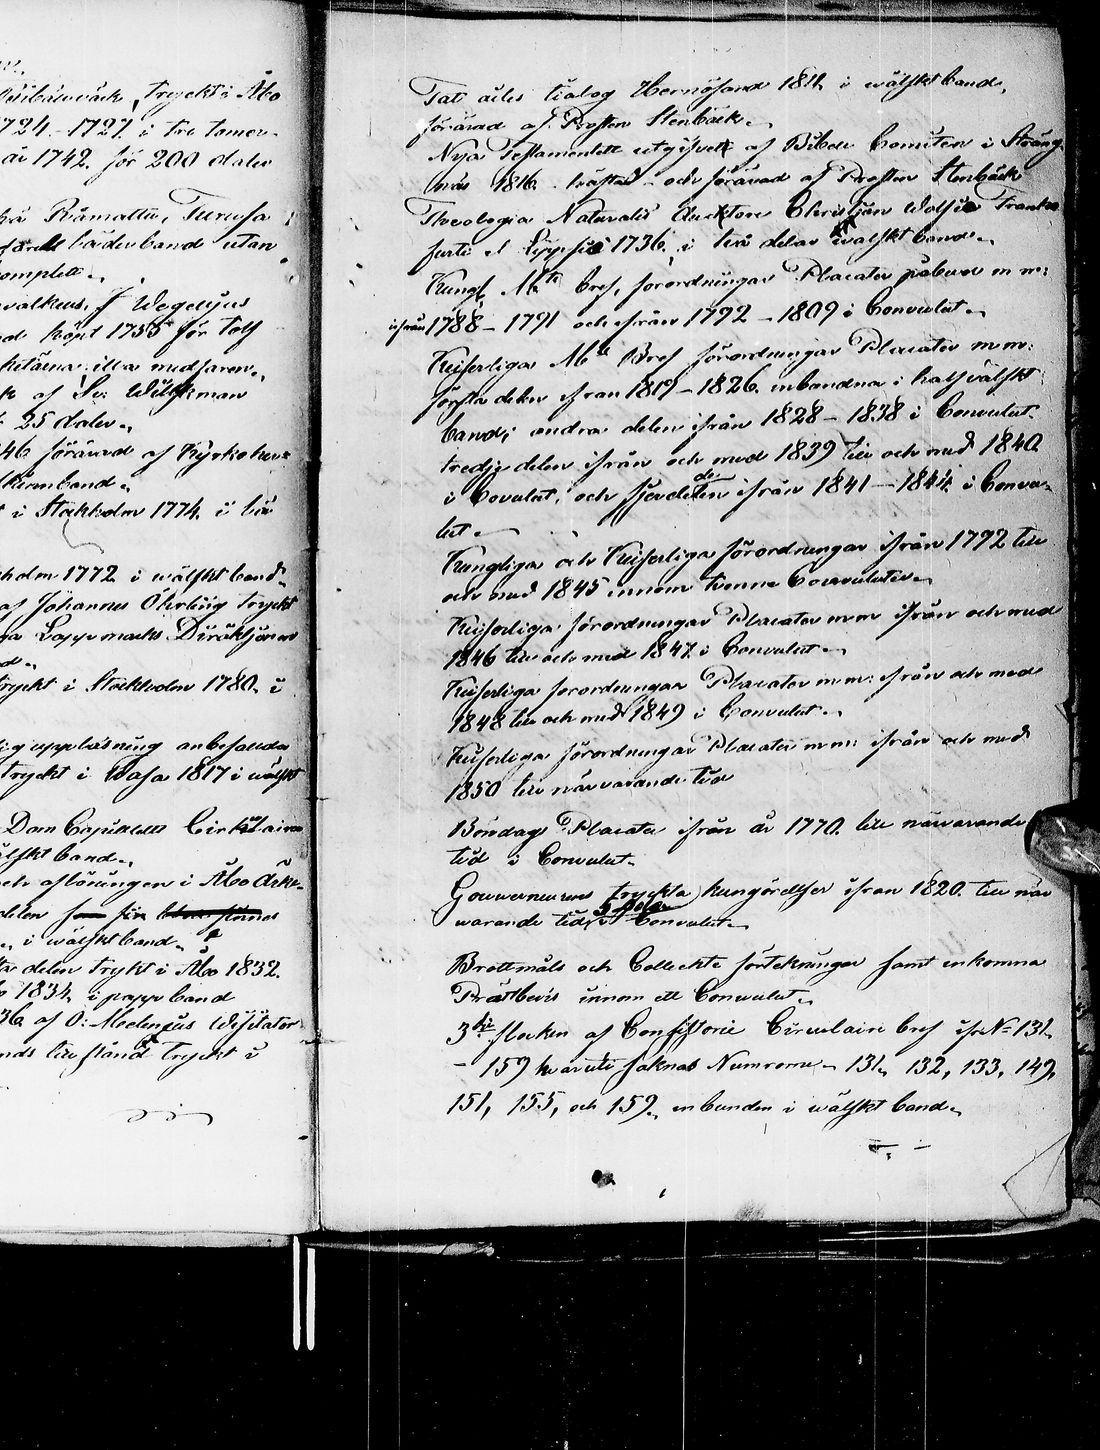 trykt i Åbo
1724.-1727. i tre tomer.
år 1742. för 200 daler
Råmattu, Turusa
läderband utan
complett.
J Wegelius
köpt 1755 för tolf
illa medfaren.
af Sv: Wilskman
25 daler.
46 förärad af Kyrkoher=
band.
i Stockholm 1774. i
holm 1772 i wälskt band.
af Johannes Öhrling tryckt
Lappmarks Diräktjonen
d.
tryckt i Stockholm 1780. i
uppläsning anbefalda
tryckt i Wasa 1817 i wälskt
Dom Capitlets Cirkulairer
älskt band.
och aflöningen i Åbo Ärke-
delen
i wälskt band.
delen Trykt i Åbo 1832.
1834. i papp band
36. af O: Mechenius Wisitator
till stånd Tryckt i
Tat ailes tialog Hernösand 1811. i wälskt band,
förärad af Prosten Stenbäck.
Nya Testamentet utgifvet af Bibel Comitén i Sträng
näs 1816. häftad - och förärad af Prosten Stenbäck
Theologia Naturalis Auctore Christian Wolfio Franko
furti et Lippsie 1736. i två delar i wälskt band.
Kungl. Mts bref, förordningar Placater påbud m m:
ifrån 1788 - 1791 och ifrån 1792 - 1809 i Convulut.
Keiserliga Mts Bref förordningar Placater m m:
första delen ifrån 1819 - 1826. inbandna i half välskt
band; andra delen ifrån 1828 - 1838 i Convulut.
tredje delen ifrån och med 1839 till och med 1840
i Covulut, och fjerde delen ifrån 1841 - 1844. i Convu-
lut.
Kungliga och Keiserliga förordningar ifrån 1792 till
och med 1845 innom tvenne Convuluter.
Keiserliga förordningar Placater mm ifrån och med
1846 till och med 1847. i Convulut.
Keiserliga förordningar Placater m m: ifrån och med
1848 till och med 1849 i Convulut.
Keiserliga förordningar Placater m m: ifrån och med
1850 till närvarande tid
Böndags Placater ifrån år 1770. till närvarande
tid i Convulut.
Gouverneurens tryckta kungörelser ifrån 1820. till när
varande tid, i Convulut.
Brottmåls och Colleckte förtekningar samt inkomna
Prästbevis innom ett Convulut.
3dje flocken af Consistorii Circulair bref ifr. N= 131.
- 159 hvaruti saknas Numrorne - 131, 132, 133, 149,
151, 155, och 159. inbunden i wälskt band.